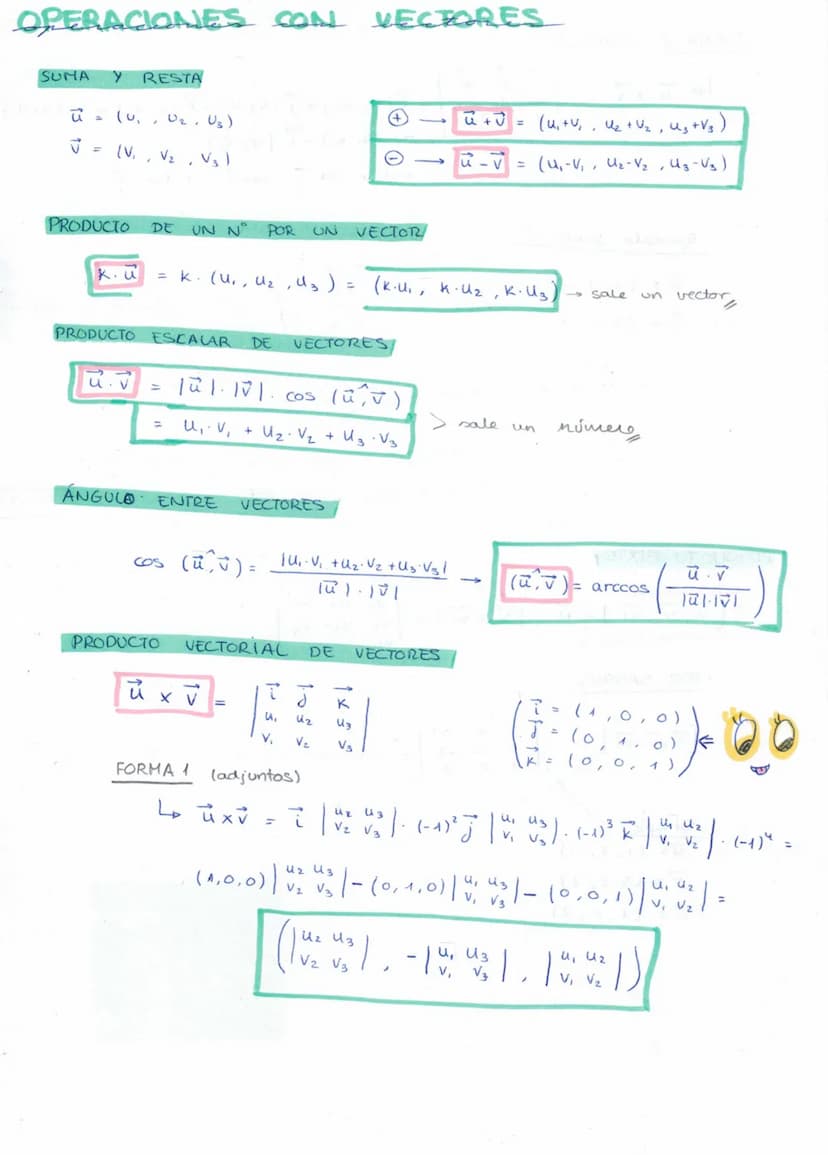 OPERACIONES CON VECTORES
SUMA Y RESTA
u⃗ = (u₁ , u₂ , u₃)
v⃗ = (v₁ , v₂ , v₃)
⊕ → u⃗ + v⃗ = (u₁+v₁ , u₂+v₂ , u₃+v₃)
⊖ → u⃗ - v⃗ = (u₁-v₁ , u₂-v₂ , u₃-v₃)
PRODUCTO DE UN Nº POR UN VECTOR
k·u⃗ = k·(u₁, u₂, u₃) = (k·u₁, k·u₂, k·u₃) → sale un vector
PRODUCTO ESCALAR DE VECTORES
u⃗·v⃗ = |u⃗|·|v⃗|·cos (u⃗,^v⃗)
= u₁·v₁ + u₂·v₂ + u₃·v₃ > sale un número
ÁNGULO ENTRE VECTORES
cos (u⃗,^v⃗) = |u₁·v₁ + u₂·v₂ + u₃·v₃| / |u⃗|·|v⃗| → (u⃗,^v⃗) = arccos (u⃗·v⃗ / |u⃗|·|v⃗|)
PRODUCTO VECTORIAL DE VECTORES
u⃗ x v⃗ = | i⃗ j⃗ k⃗ |
| u₁ u₂ u₃ |
| v₁ v₂ v₃ |
( i⃗ = (1, 0, 0)
j⃗ = (0, 1, 0)
k⃗ = (0, 0, 1) ) ⇐
FORMA 1 (adjuntos)
↳ u⃗ x v⃗ = i⃗ |u₂ u₃ / v₂ v₃|·(-1)² j⃗ |u₁ u₃ / v₁ v₃|·(-1)³ k⃗ |u₁ u₂ / v₁ v₂|·(-1)⁴ =
(1,0,0) |u₂ u₃ / v₂ v₃| - (0,1,0) |u₁ u₃ / v₁ v₃| - (0,0,1) |u₁ u₂ / v₁ v₂| =
( |u₂ u₃ / v₂ v₃| , -|u₁ u₃ / v₁ v₃| , |u₁ u₂ / v₁ v₂| )